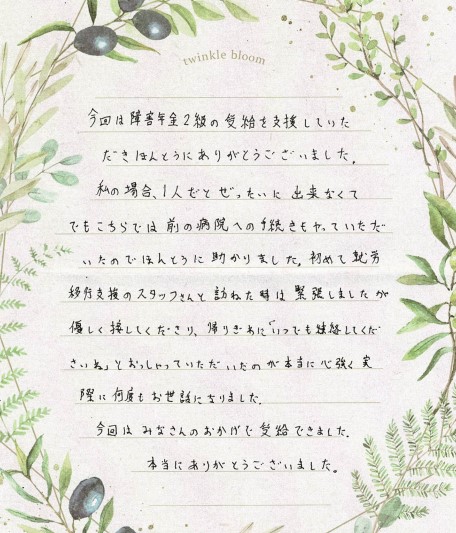 twinkle bloom
今回は障害年金2級の受給を支援していた
だきほんとうにありがとうございました。
私の場合、1人だとぜったいに出来なくて
でもこちらでは前の病院への手続きもやっていただ
いたのでほんとうに助かりました。初めて就労
移行支援のスタッフさんと訪ねた時は緊張しましたが
優しく接してくださり、帰りぎわに「いつでも連絡してくだ
さいね」とおっしゃっていただいたのが本当に心強く実
際に何度もお世話になりました。
今回はみなさんのおかげで受給できました。
本当にありがとうございました。